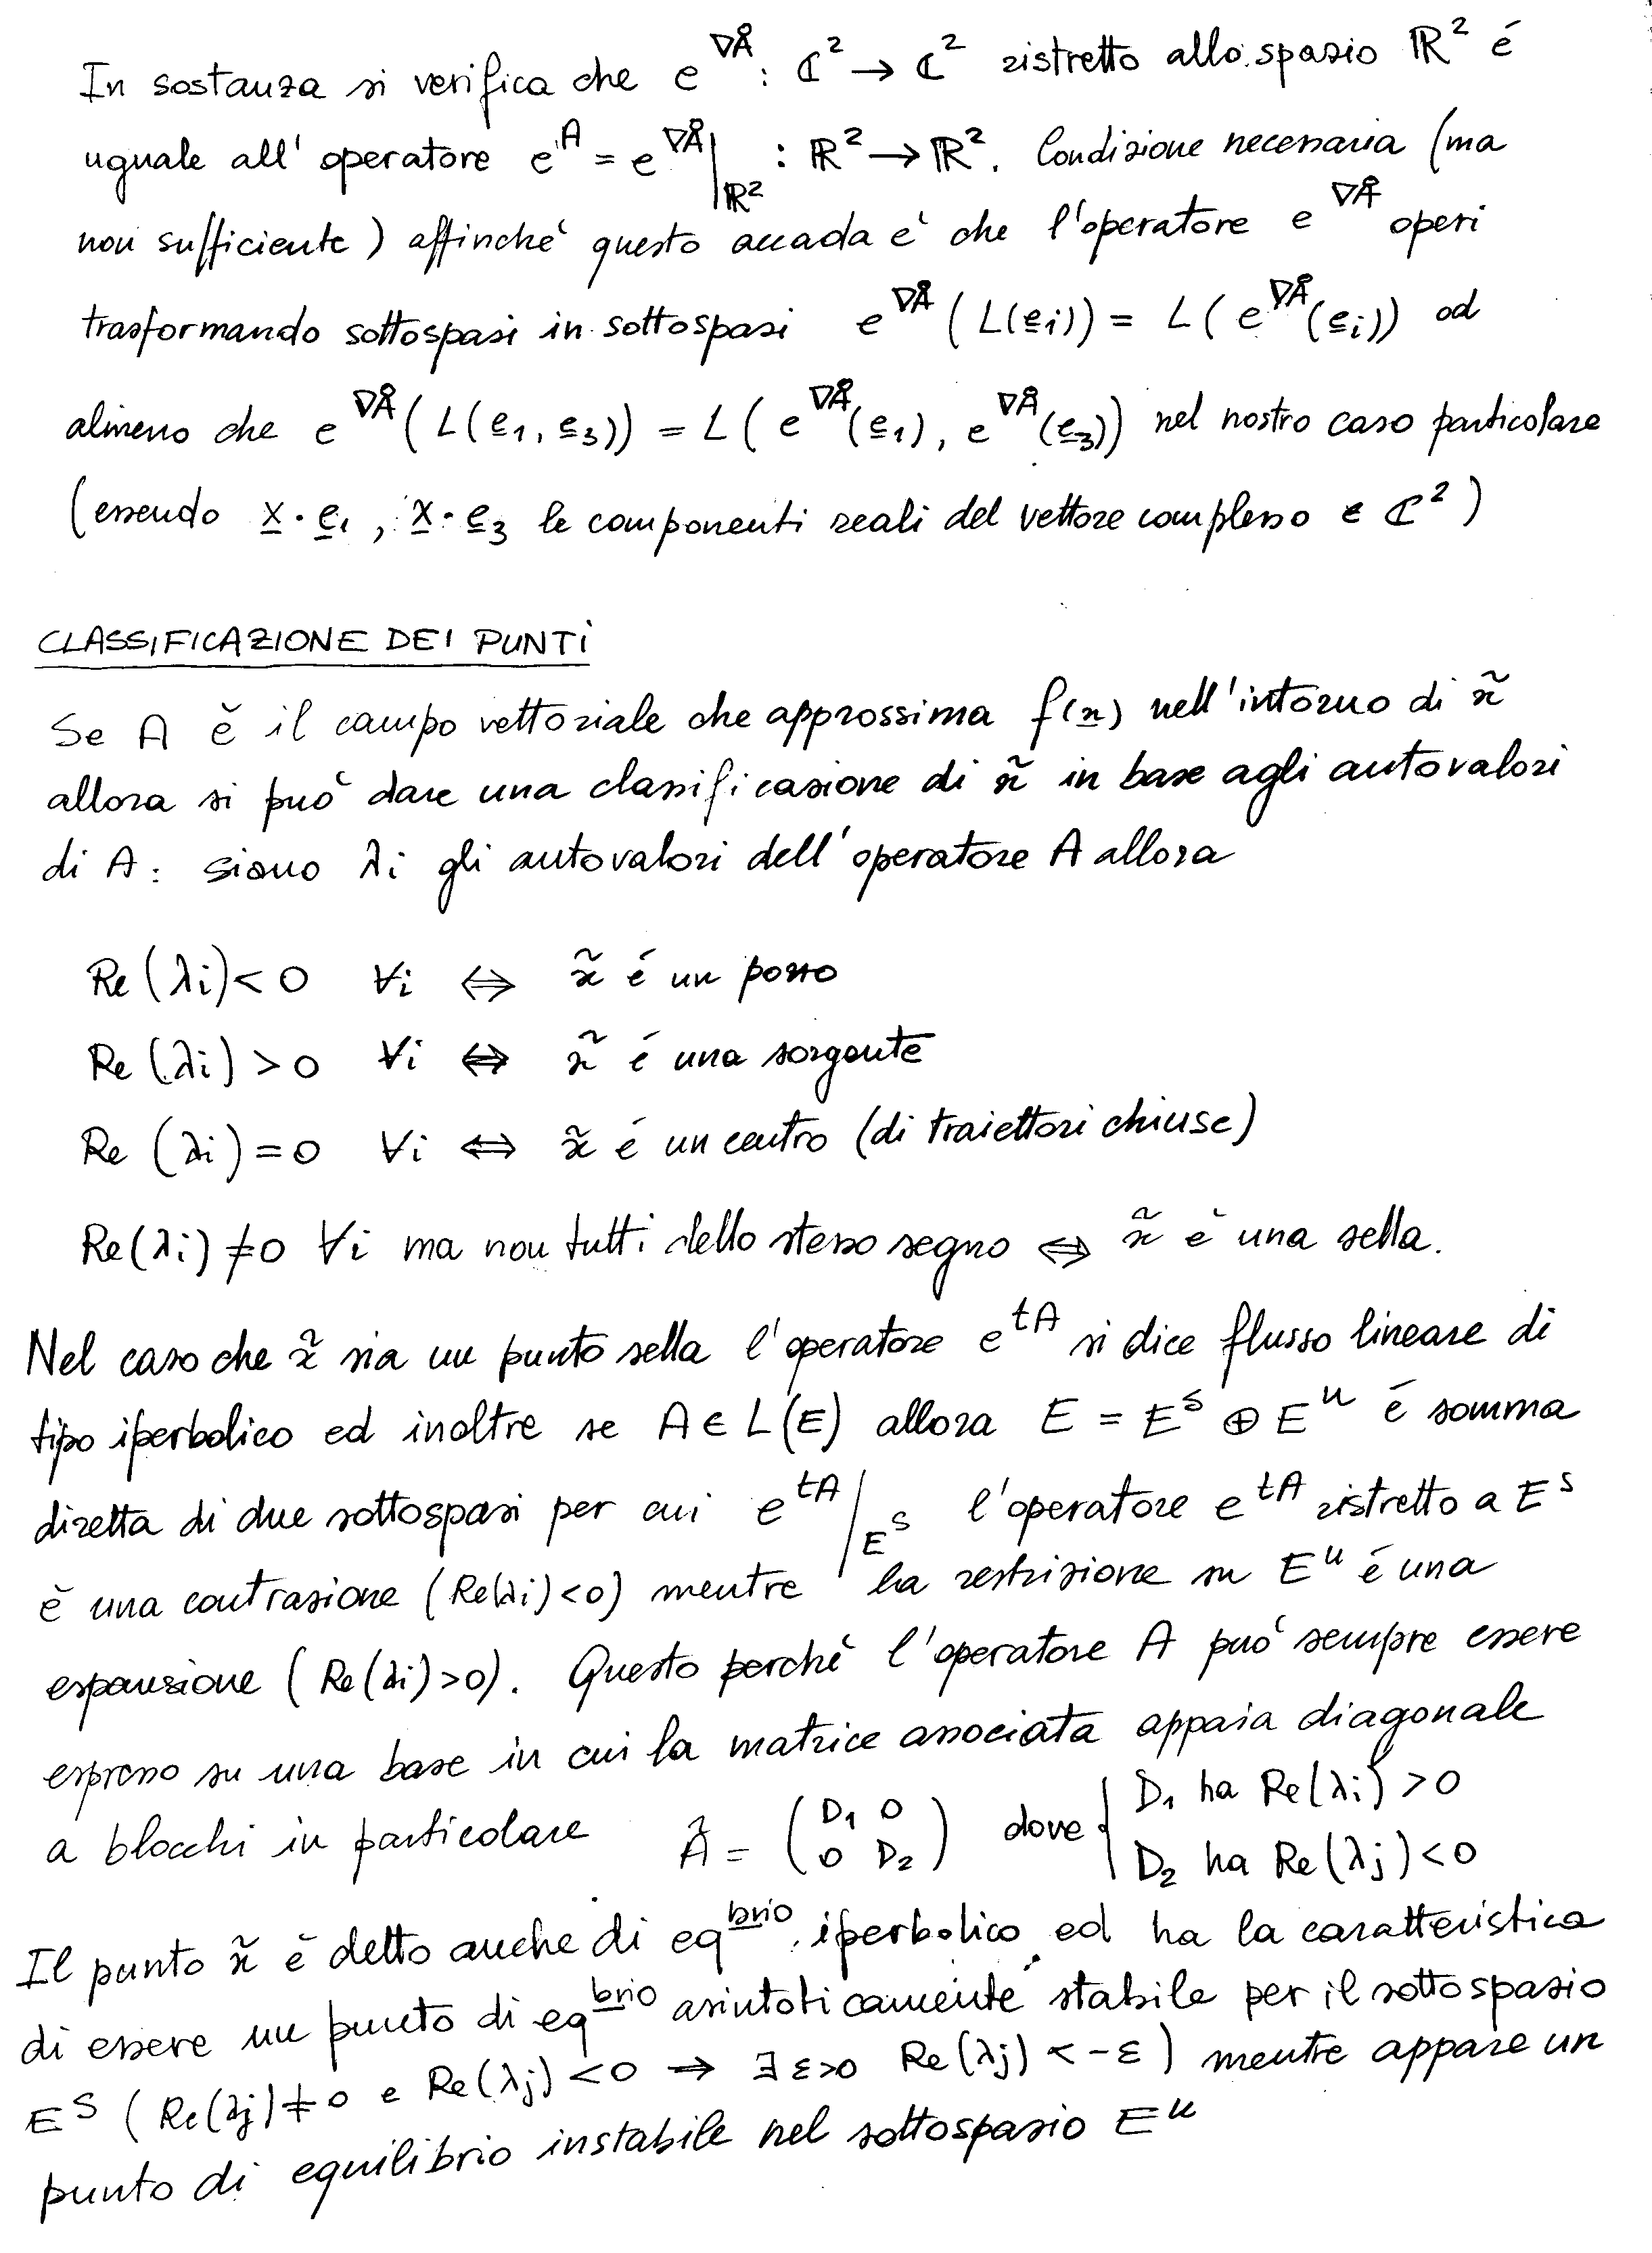 In sostanza si verifica che e^∇Å : ℂ² → ℂ² ristretto allo spazio ℝ² é
uguale all' operatore e^A = e^∇Å|ℝ² : ℝ² → ℝ². Condizione necessaria (ma
non sufficiente) affinché questo accada e' che l'operatore e^∇Å operi
trasformando sottospazi in sottospazi e^∇Å (L(e̲i)) = L(e^∇Å(e̲i)) od
almeno che e^∇Å (L(e̲1, e̲3)) = L(e^∇Å(e̲1), e^∇Å(e̲3)) nel nostro caso particolare
(essendo x̲·e̲1, x̲·e̲3 le componenti reali del vettore complesso ∈ ℂ²)
CLASSIFICAZIONE DEI PUNTI
Se A è il campo vettoriale che approssima f(x̲) nell'intorno di x̃
allora si può dare una classificazione di x̃ in base agli autovalori
di A: siano λi gli autovalori dell'operatore A allora
Re(λi) < 0 ∀i ⇔ x̃ é un pozzo
Re(λi) > 0 ∀i ⇔ x̃ é una sorgente
Re(λi) = 0 ∀i ⇔ x̃ é un centro (di traiettori chiuse)
Re(λi) ≠ 0 ∀i ma non tutti dello stesso segno ⇔ x̃ è una sella.
Nel caso che x̃ sia un punto sella l'operatore e^tA si dice flusso lineare di
tipo iperbolico ed inoltre se A ∈ L(E) allora E = E^s ⊕ E^u é somma
diretta di due sottospazi per cui e^tA|E^s l'operatore e^tA ristretto a E^s
è una contrazione (Re(λi)<0) mentre la restrizione su E^u é una
espansione (Re(λi)>0). Questo perché l'operatore A può sempre essere
espresso su una base in cui la matrice associata appaia diagonale
a blocchi in particolare Ã = (D1 0 0 D2) dove { D1 ha Re(λi) > 0
D2 ha Re(λj) < 0
Il punto x̃ è detto anche di eq^brio iperbolico ed ha la caratteristica
di essere un punto di eq^brio asintoticamente stabile per il sottospazio
E^s (Re(λj) ≠ 0 e Re(λj) < 0 → ∃ ε>0 Re(λj) < -ε) mentre appare un
punto di equilibrio instabile nel sottospazio E^u